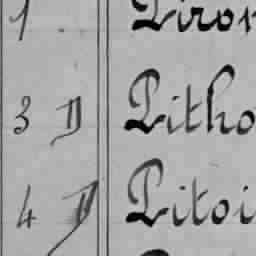 1 Piron
3 D Pitho
4 D Pitoi